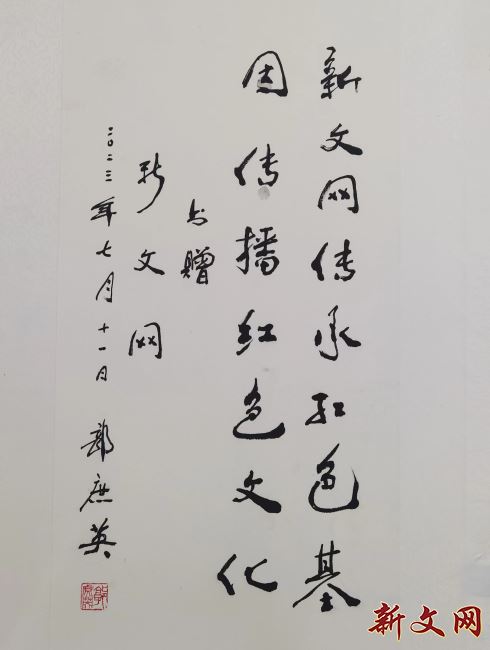 新文网传承红色基
因传播红色文化
书赠
新文网
二〇二三年七月十一日 郭庶英
新文网